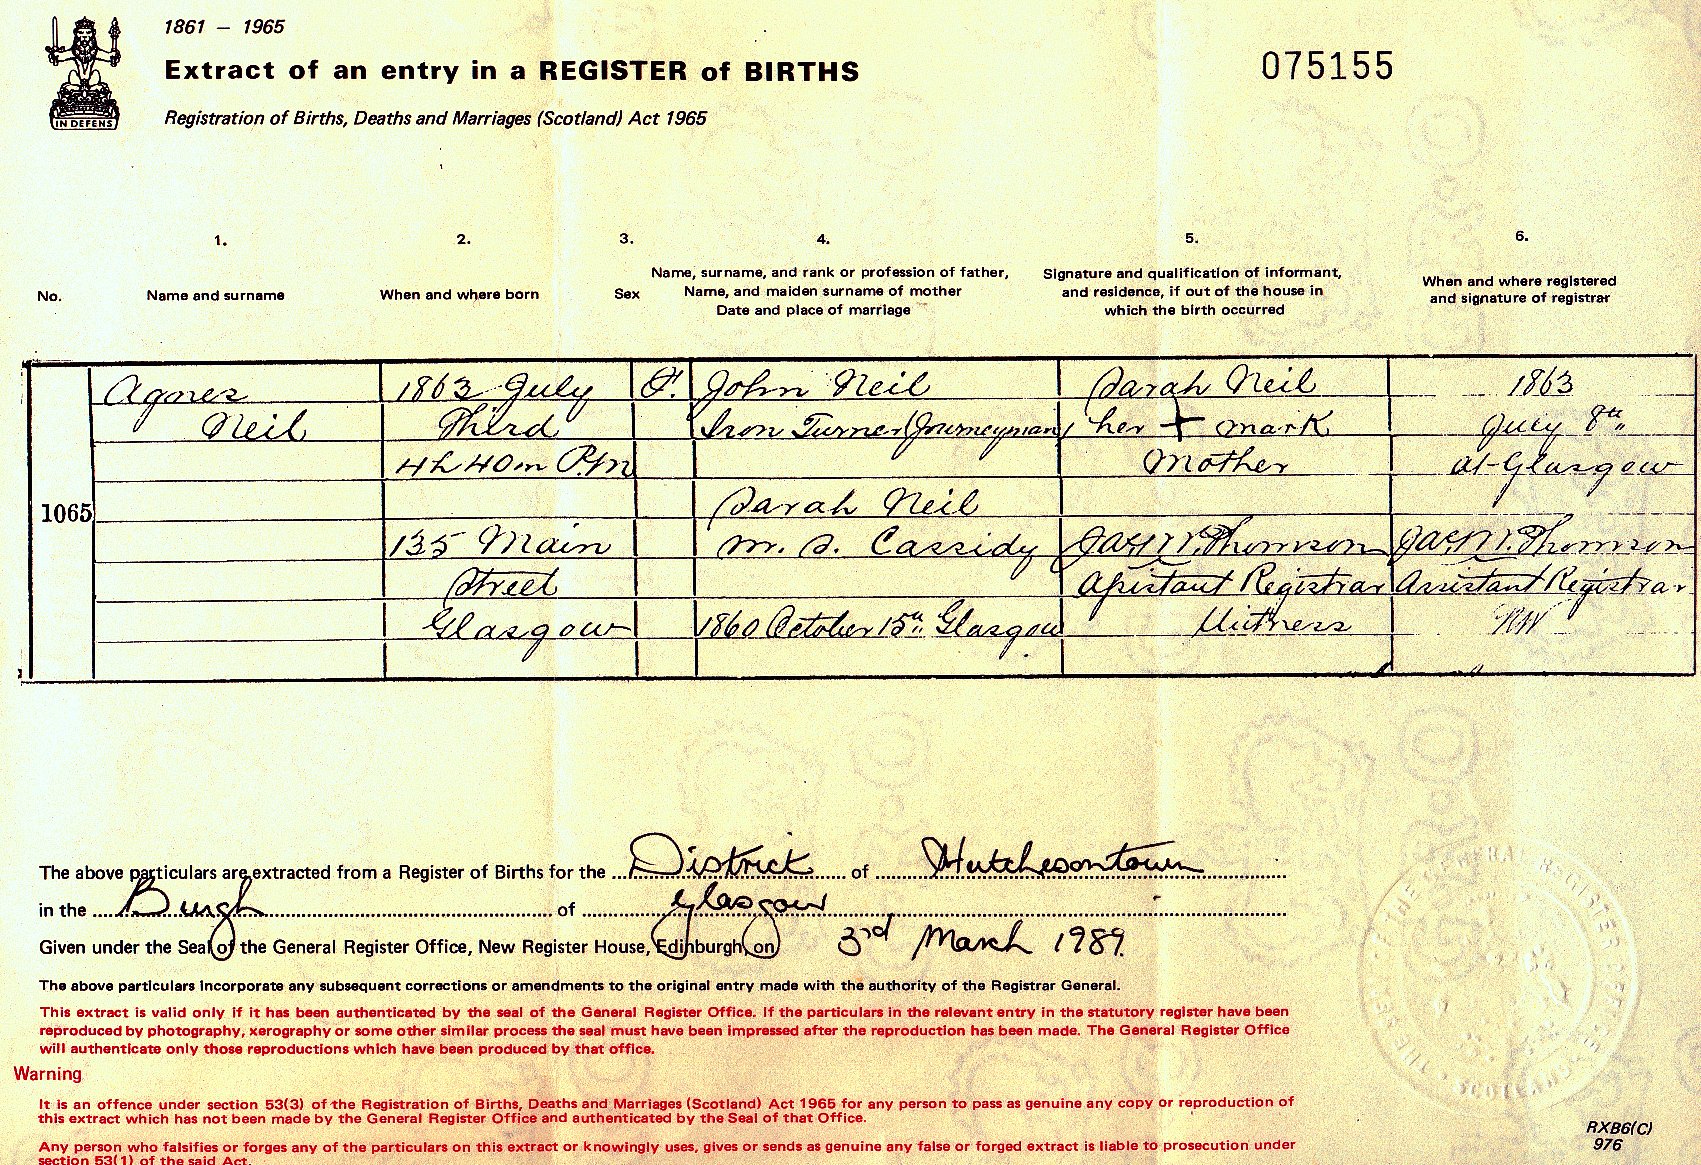 1861 – 1965
Extract of an entry in a REGISTER of BIRTHS
075155
IN DEFENS
Registration of Births, Deaths and Marriages (Scotland) Act 1965
1. 2. 3. 4. 5. 6.
No.
Name and surname
When and where born
Sex
Name, surname, and rank or profession of father,
Name, and maiden surname of mother
Date and place of marriage
Signature and qualification of informant,
and residence, if out of the house in
which the birth occurred
When and where registered
and signature of registrar
1065
Agnes
Neil
1863 July
Third
4h 40m P.M
135 Main
Street
Glasgow
F.
John Neil
Iron Turner (Journeyman)
Sarah Neil
m. s. Cassidy
1860 October 15th Glasgow
Sarah Neil
her + mark
Mother
Jas. W. Thomson
Assistant Registrar
Witness
1863
July 8th
at Glasgow
Jas. W. Thomson
Assistant Registrar
RW
The above particulars are extracted from a Register of Births for the District of Hutchesontown
in the Burgh of Glasgow
Given under the Seal of the General Register Office, New Register House, Edinburgh, on 3rd March 1989.
The above particulars incorporate any subsequent corrections or amendments to the original entry made with the authority of the Registrar General.
This extract is valid only if it has been authenticated by the seal of the General Register Office. If the particulars in the relevant entry in the statutory register have been
reproduced by photography, xerography or some other similar process the seal must have been impressed after the reproduction has been made. The General Register Office
will authenticate only those reproductions which have been produced by that office.
Warning
It is an offence under section 53(3) of the Registration of Births, Deaths and Marriages (Scotland) Act 1965 for any person to pass as genuine any copy or reproduction of
this extract which has not been made by the General Register Office and authenticated by the Seal of that Office.
Any person who falsifies or forges any of the particulars on this extract or knowingly uses, gives or sends as genuine any false or forged extract is liable to prosecution under
section 53(1) of the said Act.
RXB6(C)
976